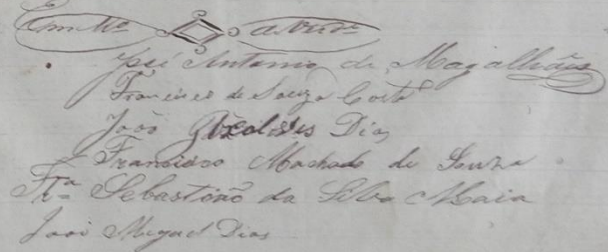 José Antonio de Magalhães
Francisco de Souza Costa
João Dias
Francisco Machado de Souza
Sebastião da Silva Maia
José Miguel Dias